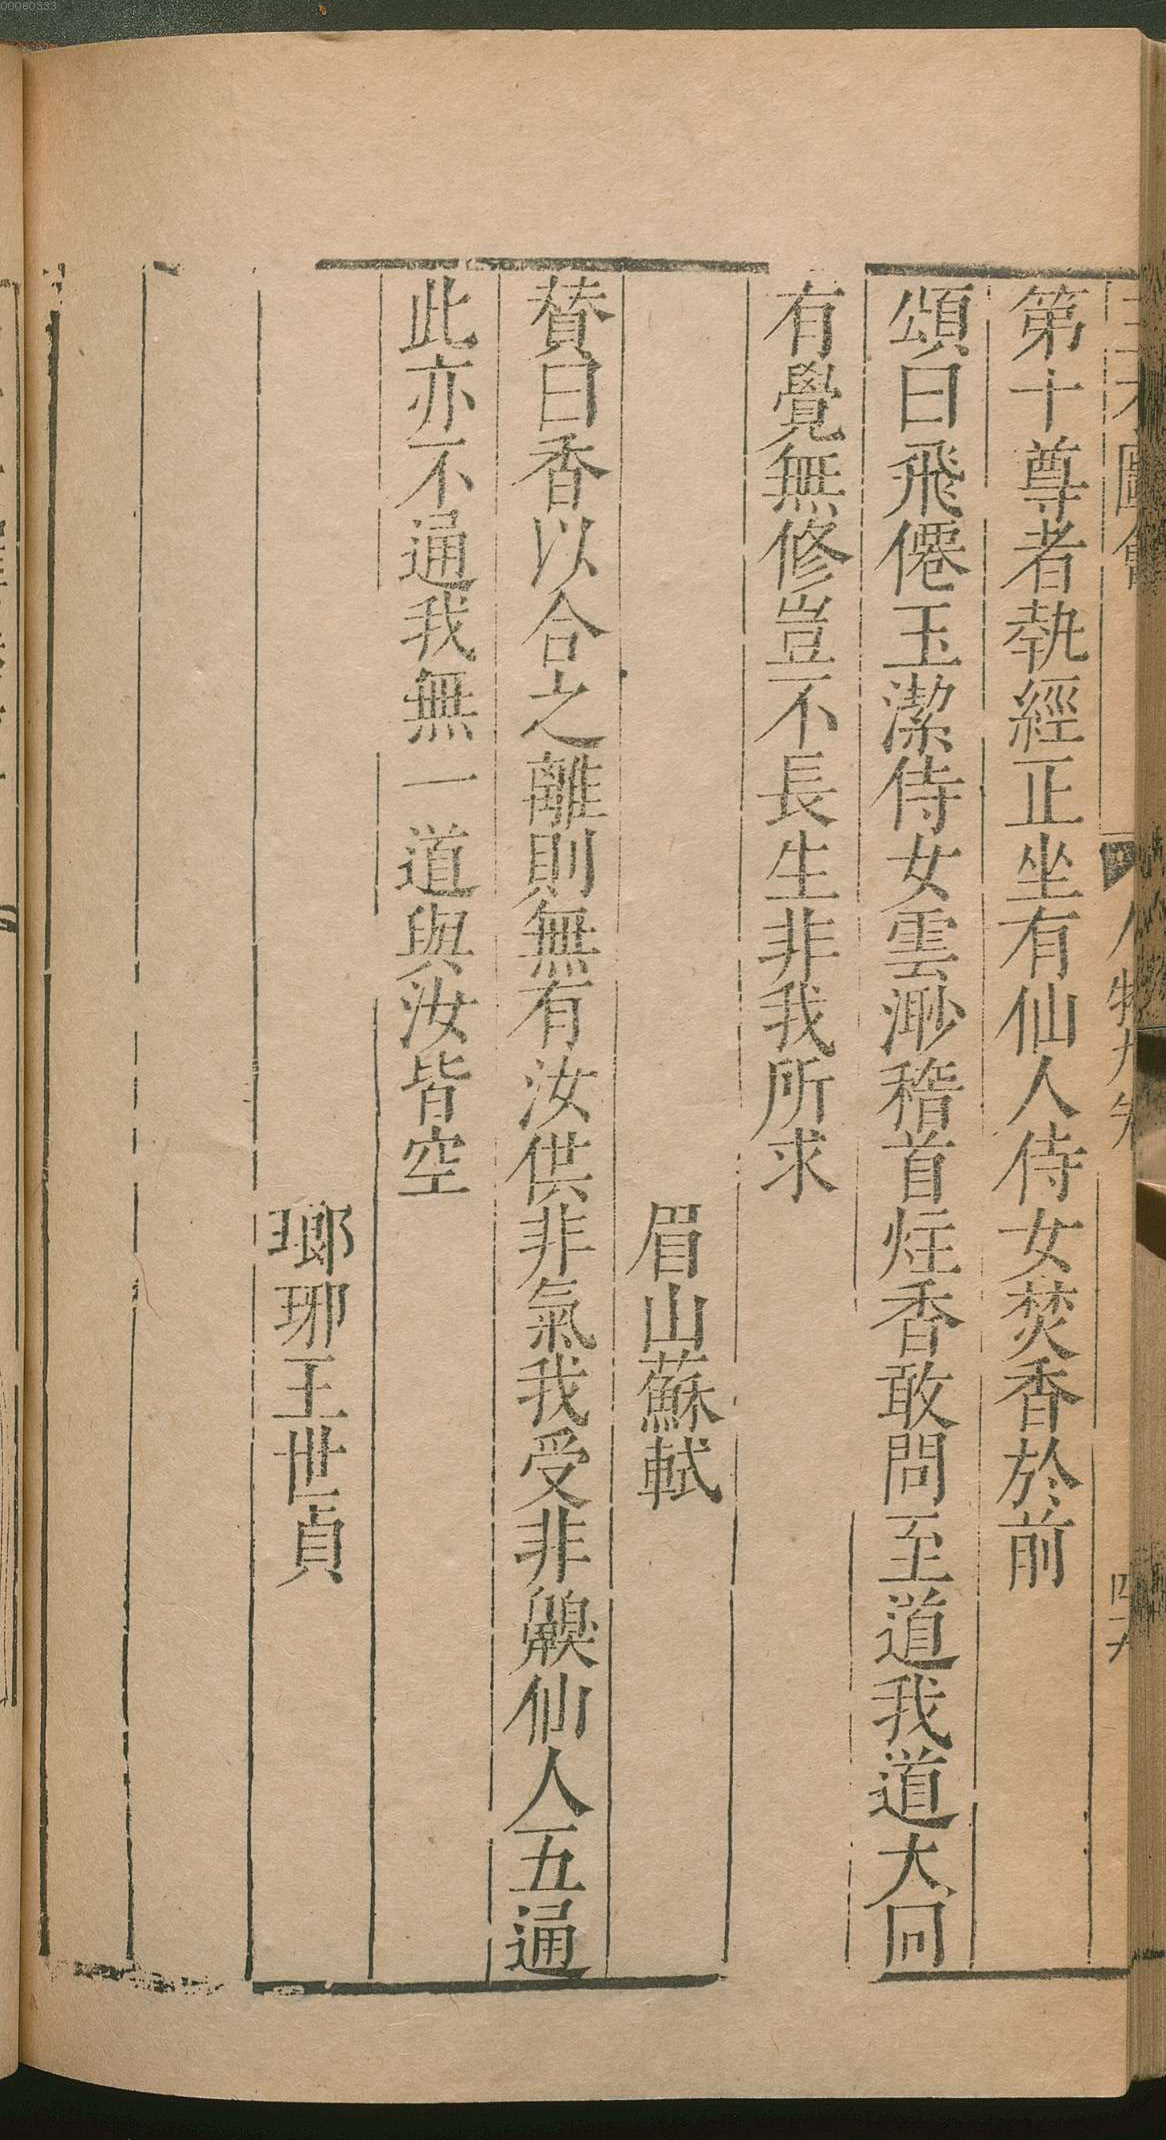 00080333
第十尊者執經正坐有仙人侍女焚香於前
頌曰飛僊玉潔侍女雲渺稽首炷香敢問至道我道大同
有覺無修豈不長生非我所求
眉山蘇軾
賛曰香以合之離則無有汝供非氣我受非齅仙人五通
此亦不通我無一道與汝皆空
瑯琊王世貞